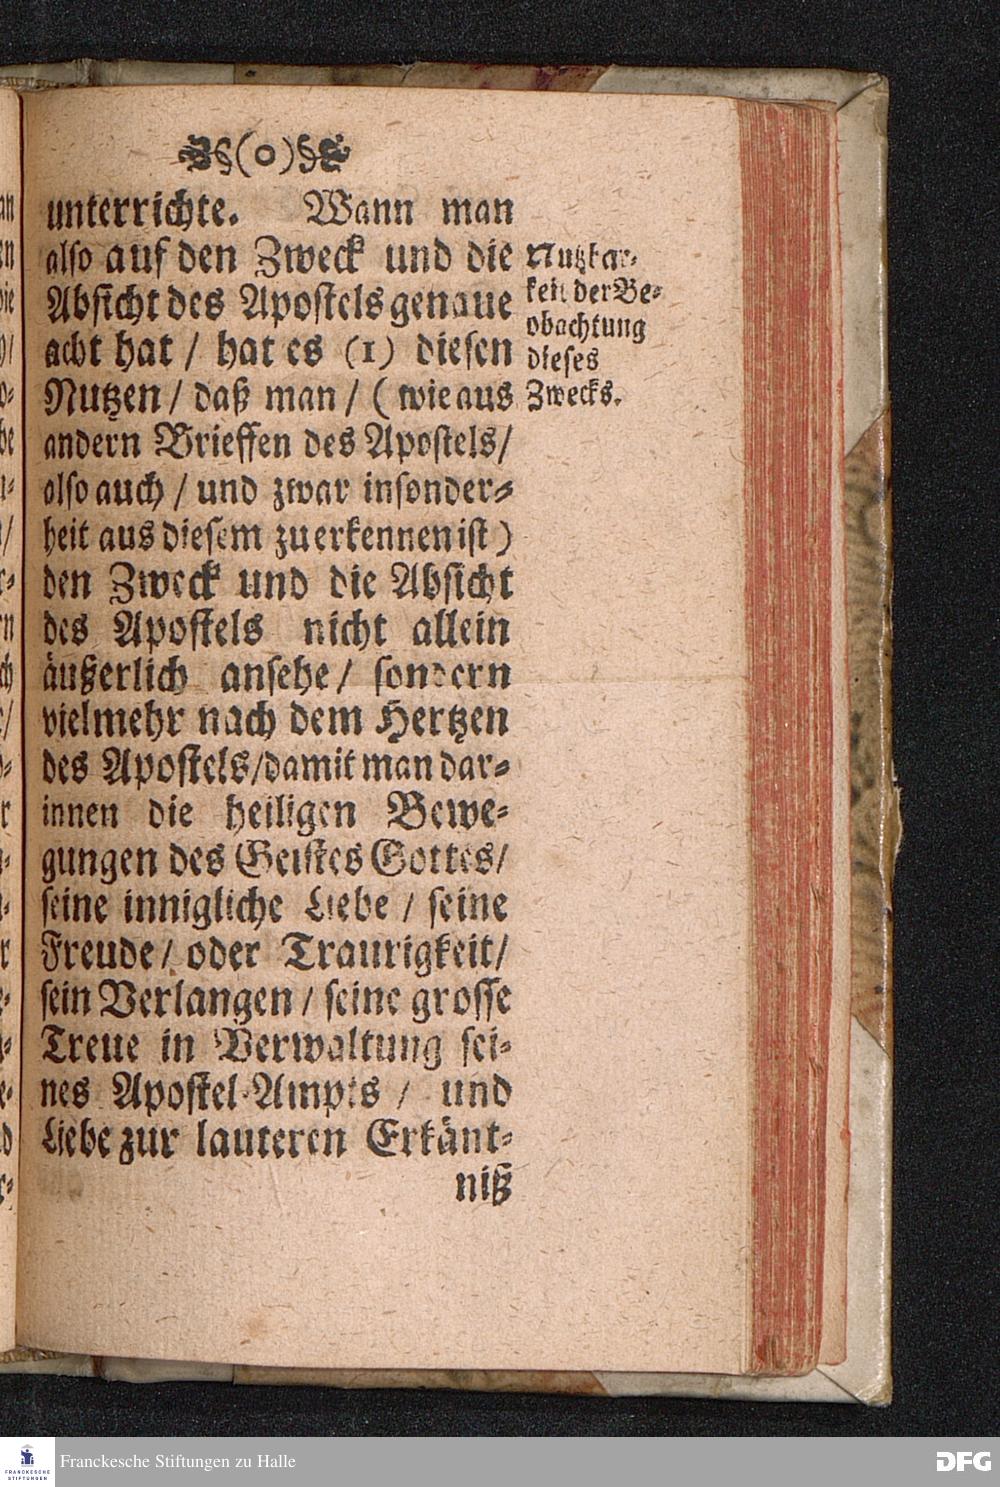 §(o)§
unterrichte. Wann man
also auf den Zweck und die
Absicht des Apostels genaue
acht hat / hat es (1) diesen
Nutzen / daß man / ( wie aus
andern Brieffen des Apostels /
also auch / und zwar insonder-
heit aus diesem zu erkennen ist )
den Zweck und die Absicht
des Apostels nicht allein
äußerlich ansehe / sondern
vielmehr nach dem Hertzen
des Apostels / damit man dar-
innen die heiligen Bewe-
gungen des Geistes Gottes /
seine innigliche Liebe / seine
Freude / oder Traurigkeit /
sein Verlangen / seine grosse
Treue in Verwaltung sei-
nes Apostel-Ampts / und
Liebe zur lauteren Erkänt-
niß
Nutzbar-
keit der Be-
obachtung
dieses
Zwecks.
FRANCKESCHE
STIFTUNGEN
Franckesche Stiftungen zu Halle
DFG